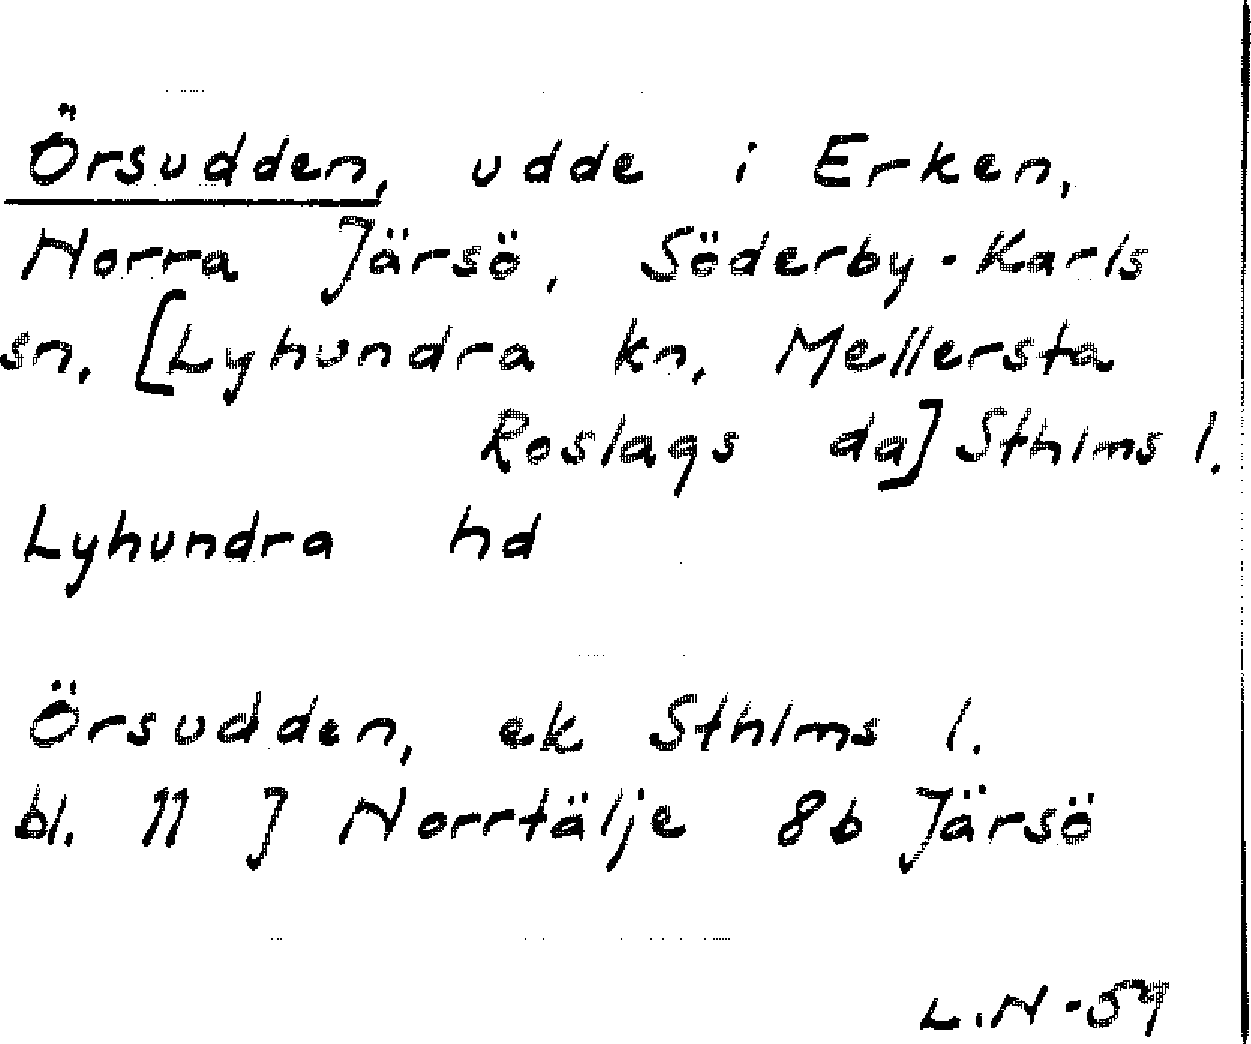 Örsudden, udde i Erken,
Norra Järsö, Söderby-Karls
sn. [Lyhundra kn, Mellersta
Roslags da] Sthlms l.
Lyhundra hd
Örsudden, ek Sthlms l.
bl. 11 J Norrtälje 8b Järsö
L.N -59